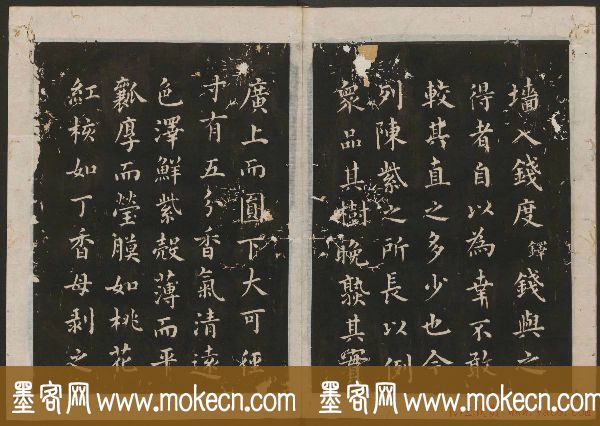 墻入錢度錢與之
鐸
得者自以為幸不敢
較其直之多少也今
列陳紫之所長以例
衆品其樹晚熟其實
廣上而圓下大可徑
寸有五分香氣清遠
色澤鮮紫殼薄而平
瓤厚而瑩膜如桃花
紅核如丁香母剥之
墨客网 www.mokecn.com 墨客网 www.mokecn.com